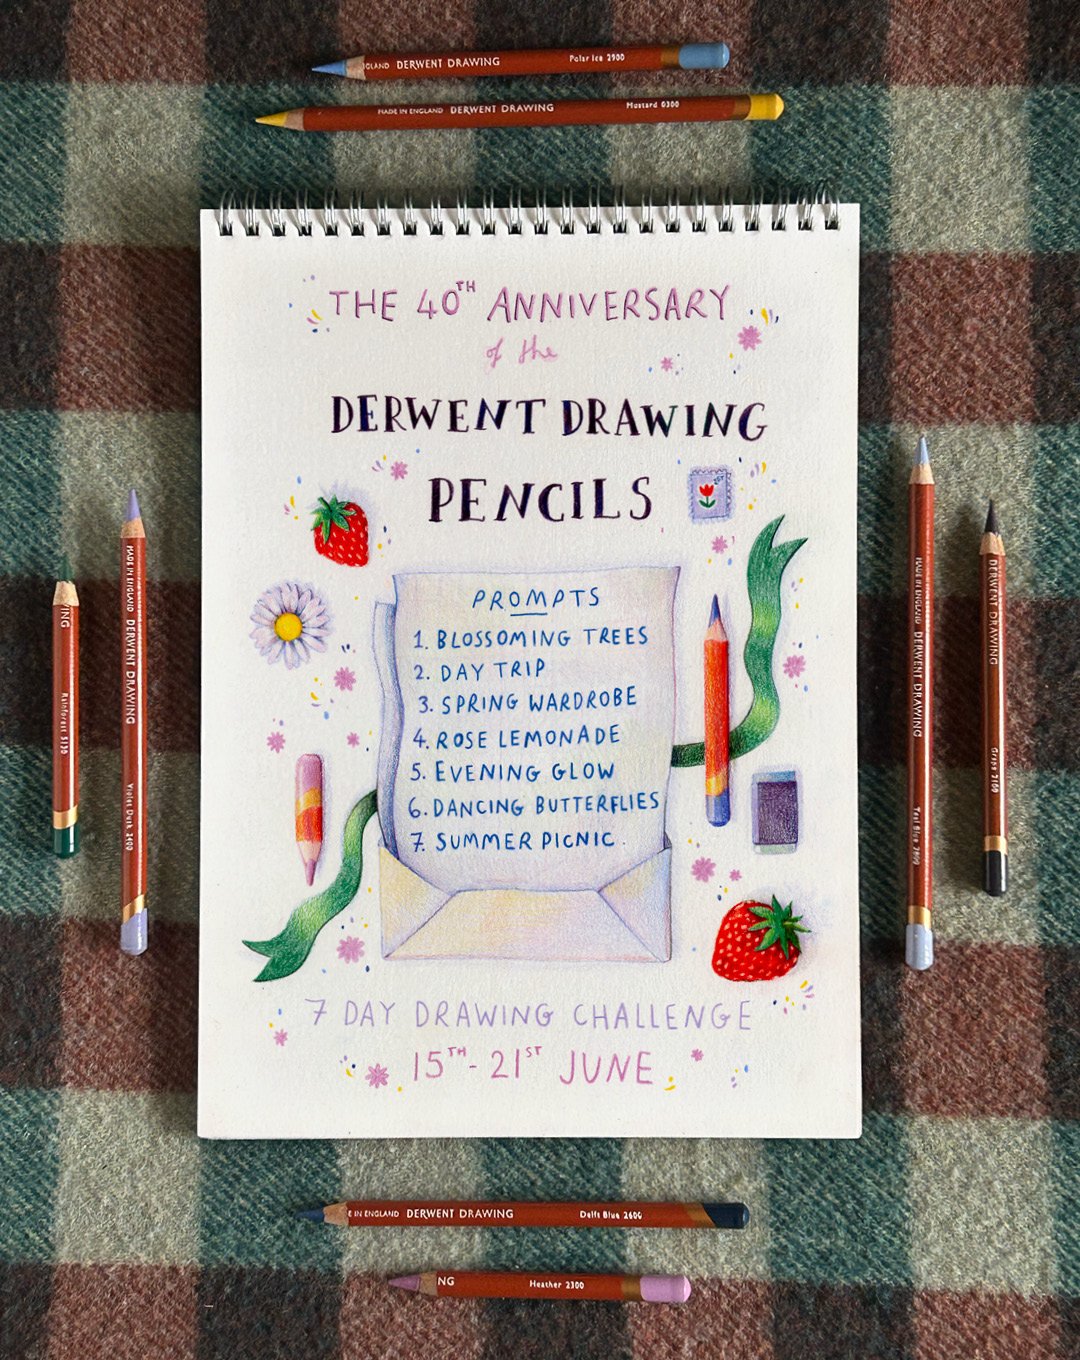 ENGLAND DERWENT DRAWING Polar Ice 2900
MADE IN ENGLAND DERWENT DRAWING Mustard 0300
THE 40TH ANNIVERSARY
of the
DERWENT DRAWING
PENCILS
1ST
PROMPTS
1. BLOSSOMING TREES
2. DAY TRIP
3. SPRING WARDROBE
4. ROSE LEMONADE
5. EVENING GLOW
6. DANCING BUTTERFLIES
7. SUMMER PICNIC.
7 DAY DRAWING CHALLENGE
15TH - 21ST JUNE
ING Rainforest 5130
MADE IN ENGLAND DERWENT DRAWING Violet Dusk 2400
MADE IN ENGLAND DERWENT DRAWING Teal Blue 2800
DERWENT DRAWING Grape 2100
E IN ENGLAND DERWENT DRAWING Delft Blue 2600
NG Heather 2300